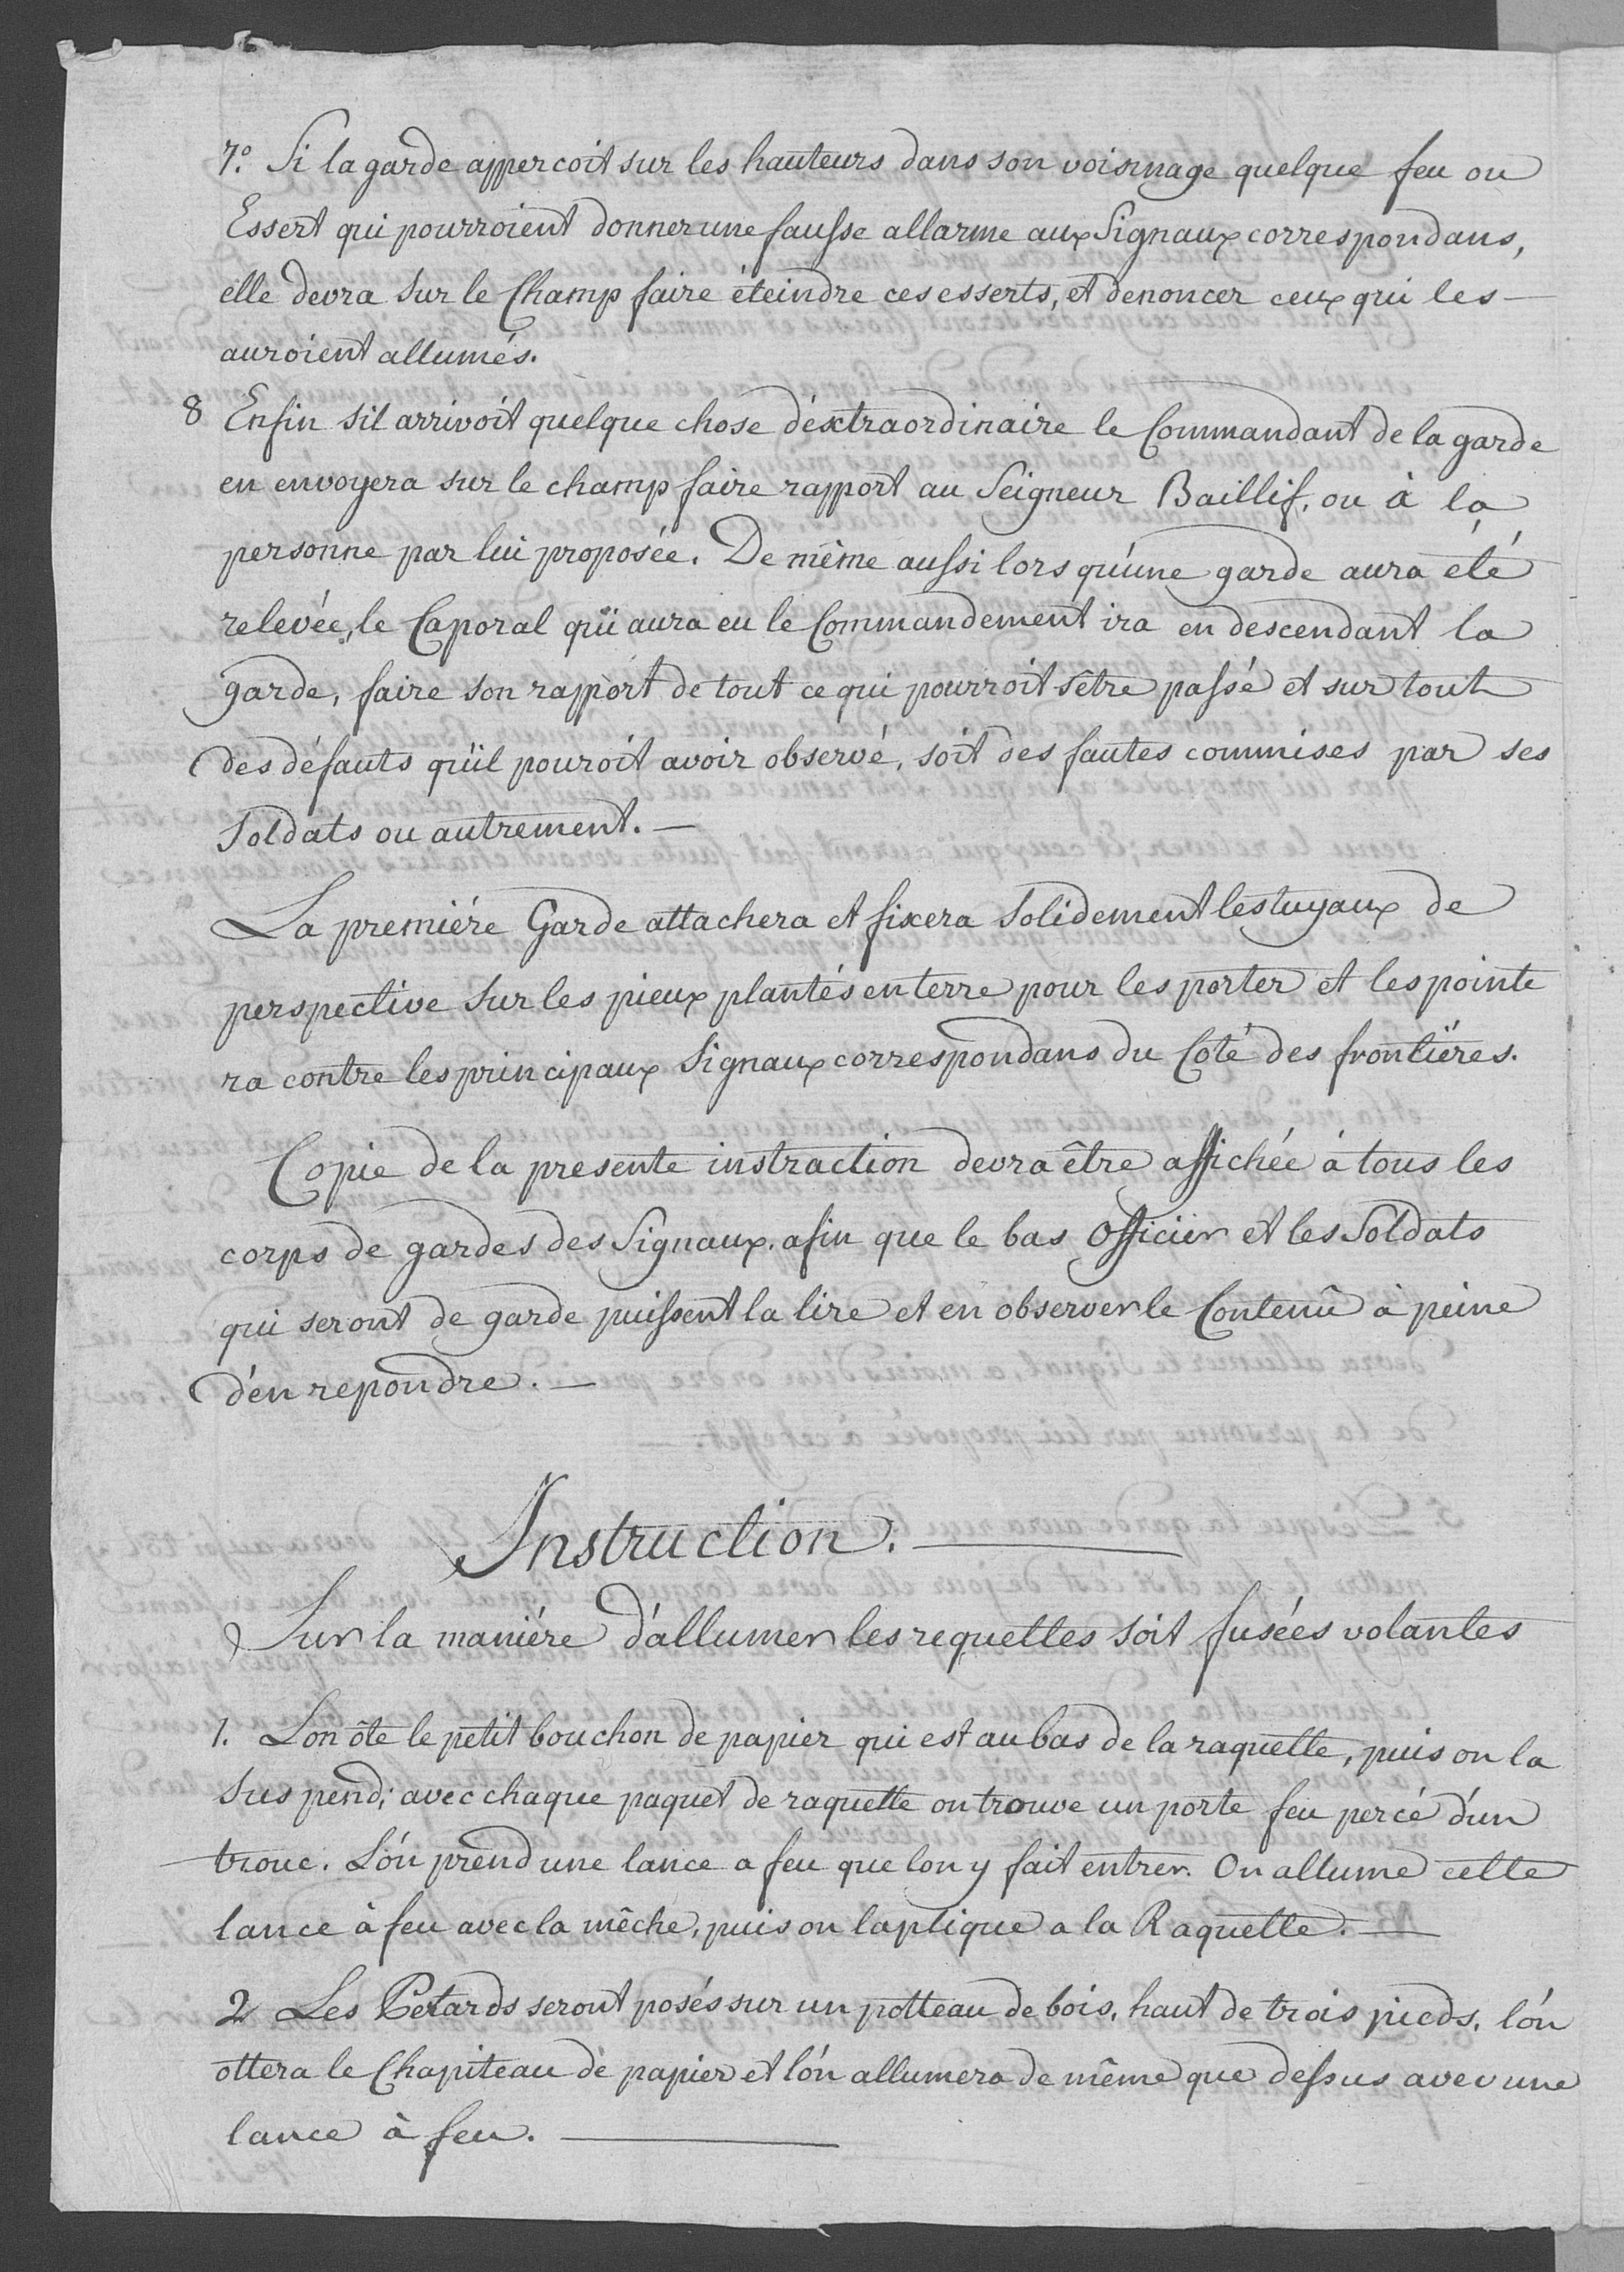 7.° Si la garde appercoit sur les hauteurs dans son voisinage quelque feu ou
Essert qui pourroient donner une fausse allarme aux Signaux correspondans,
elle devra sur le Champ faire éteindre ces esserts, et denoncer ceux qui les —
auroient allumés.
8 Enfin sil arrivoit quelque chose déxtraordinaire le Commandant de la garde
en envoyera sur le champ faire rapport au Seigneur Baillif, ou à la
personne par lui proposée. De même aussi lors qu'une garde aura été
relevée, le Caporal qui aura eu le Commandement ira en descendant la
garde, faire son rapport de tout ce qui pourroit s'être passé et sur tout
des défauts qu'il pouroit avoir observé, soit des fautes commises par ses
Soldats ou autrement. —
La premiére Garde attachera et fixera Solidement les tuyaux de
perspective sur les pieux plantés en terre pour les porter et les pointe
ra contre les principaux Signaux correspondans du Coté des frontiéres.
Copie de la presente instraction devra être affichée à tous les
corps de gardes des Signaux. afin que le bas Officier et les Soldats
qui seront de garde puissent la lire et en observer le Contenû à peine
d'en repondre. —
Instruction. —
Sur la maniére d'allumer les requettes soit fusées volantes
1. L'on ôte le petit bouchon de papier qui est au bas de la raquette, puis on la
suspend; avec chaque paquet de raquette on trouve un porte feu percé d'un
trouc. L'on prend une lance a feu que lon y fait entrer. On allume cette
lance à feu avec la mêche, puis on laplique a la Raquette. —
2 Les Petards seront posés sur un potteau de bois, haut de trois pieds. l'on
ottera le Chapiteau de papier et l'on allumera de même que dessus avec une
lance à feu. —